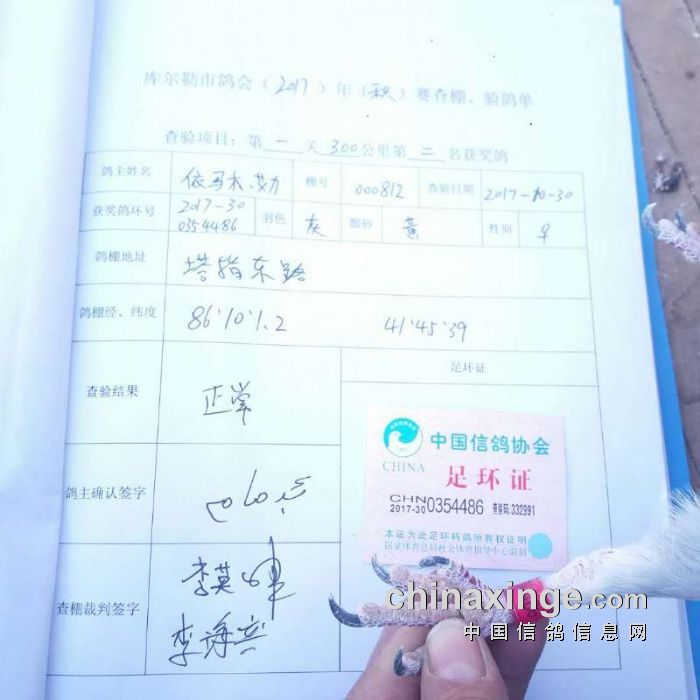 库尔勒市鸽会(2017)年(秋)赛查棚、验鸽单
查验项目:第一关300公里第二名获奖鸽
鸽主姓名 依马木.艾力 棚号 000812 查验日期 2017-10-30
获奖鸽环号 2017-30 0354486 羽色 灰 眼砂 黄 性别 ♀
鸽棚地址 塔指东路
鸽棚经、纬度 86°10'1.2 41°45'39
查验结果 正常
足环证
鸽主确认签字
查棚裁判签字 李英
李海
中国信鸽协会
CHINA
足环证
CHN
2017-30 0354486 查验码:332991
本证为此足环码鸽所有权证明
国家体育总局社会体育指导中心监制
chinaxinge.com
中国信鸽信息网